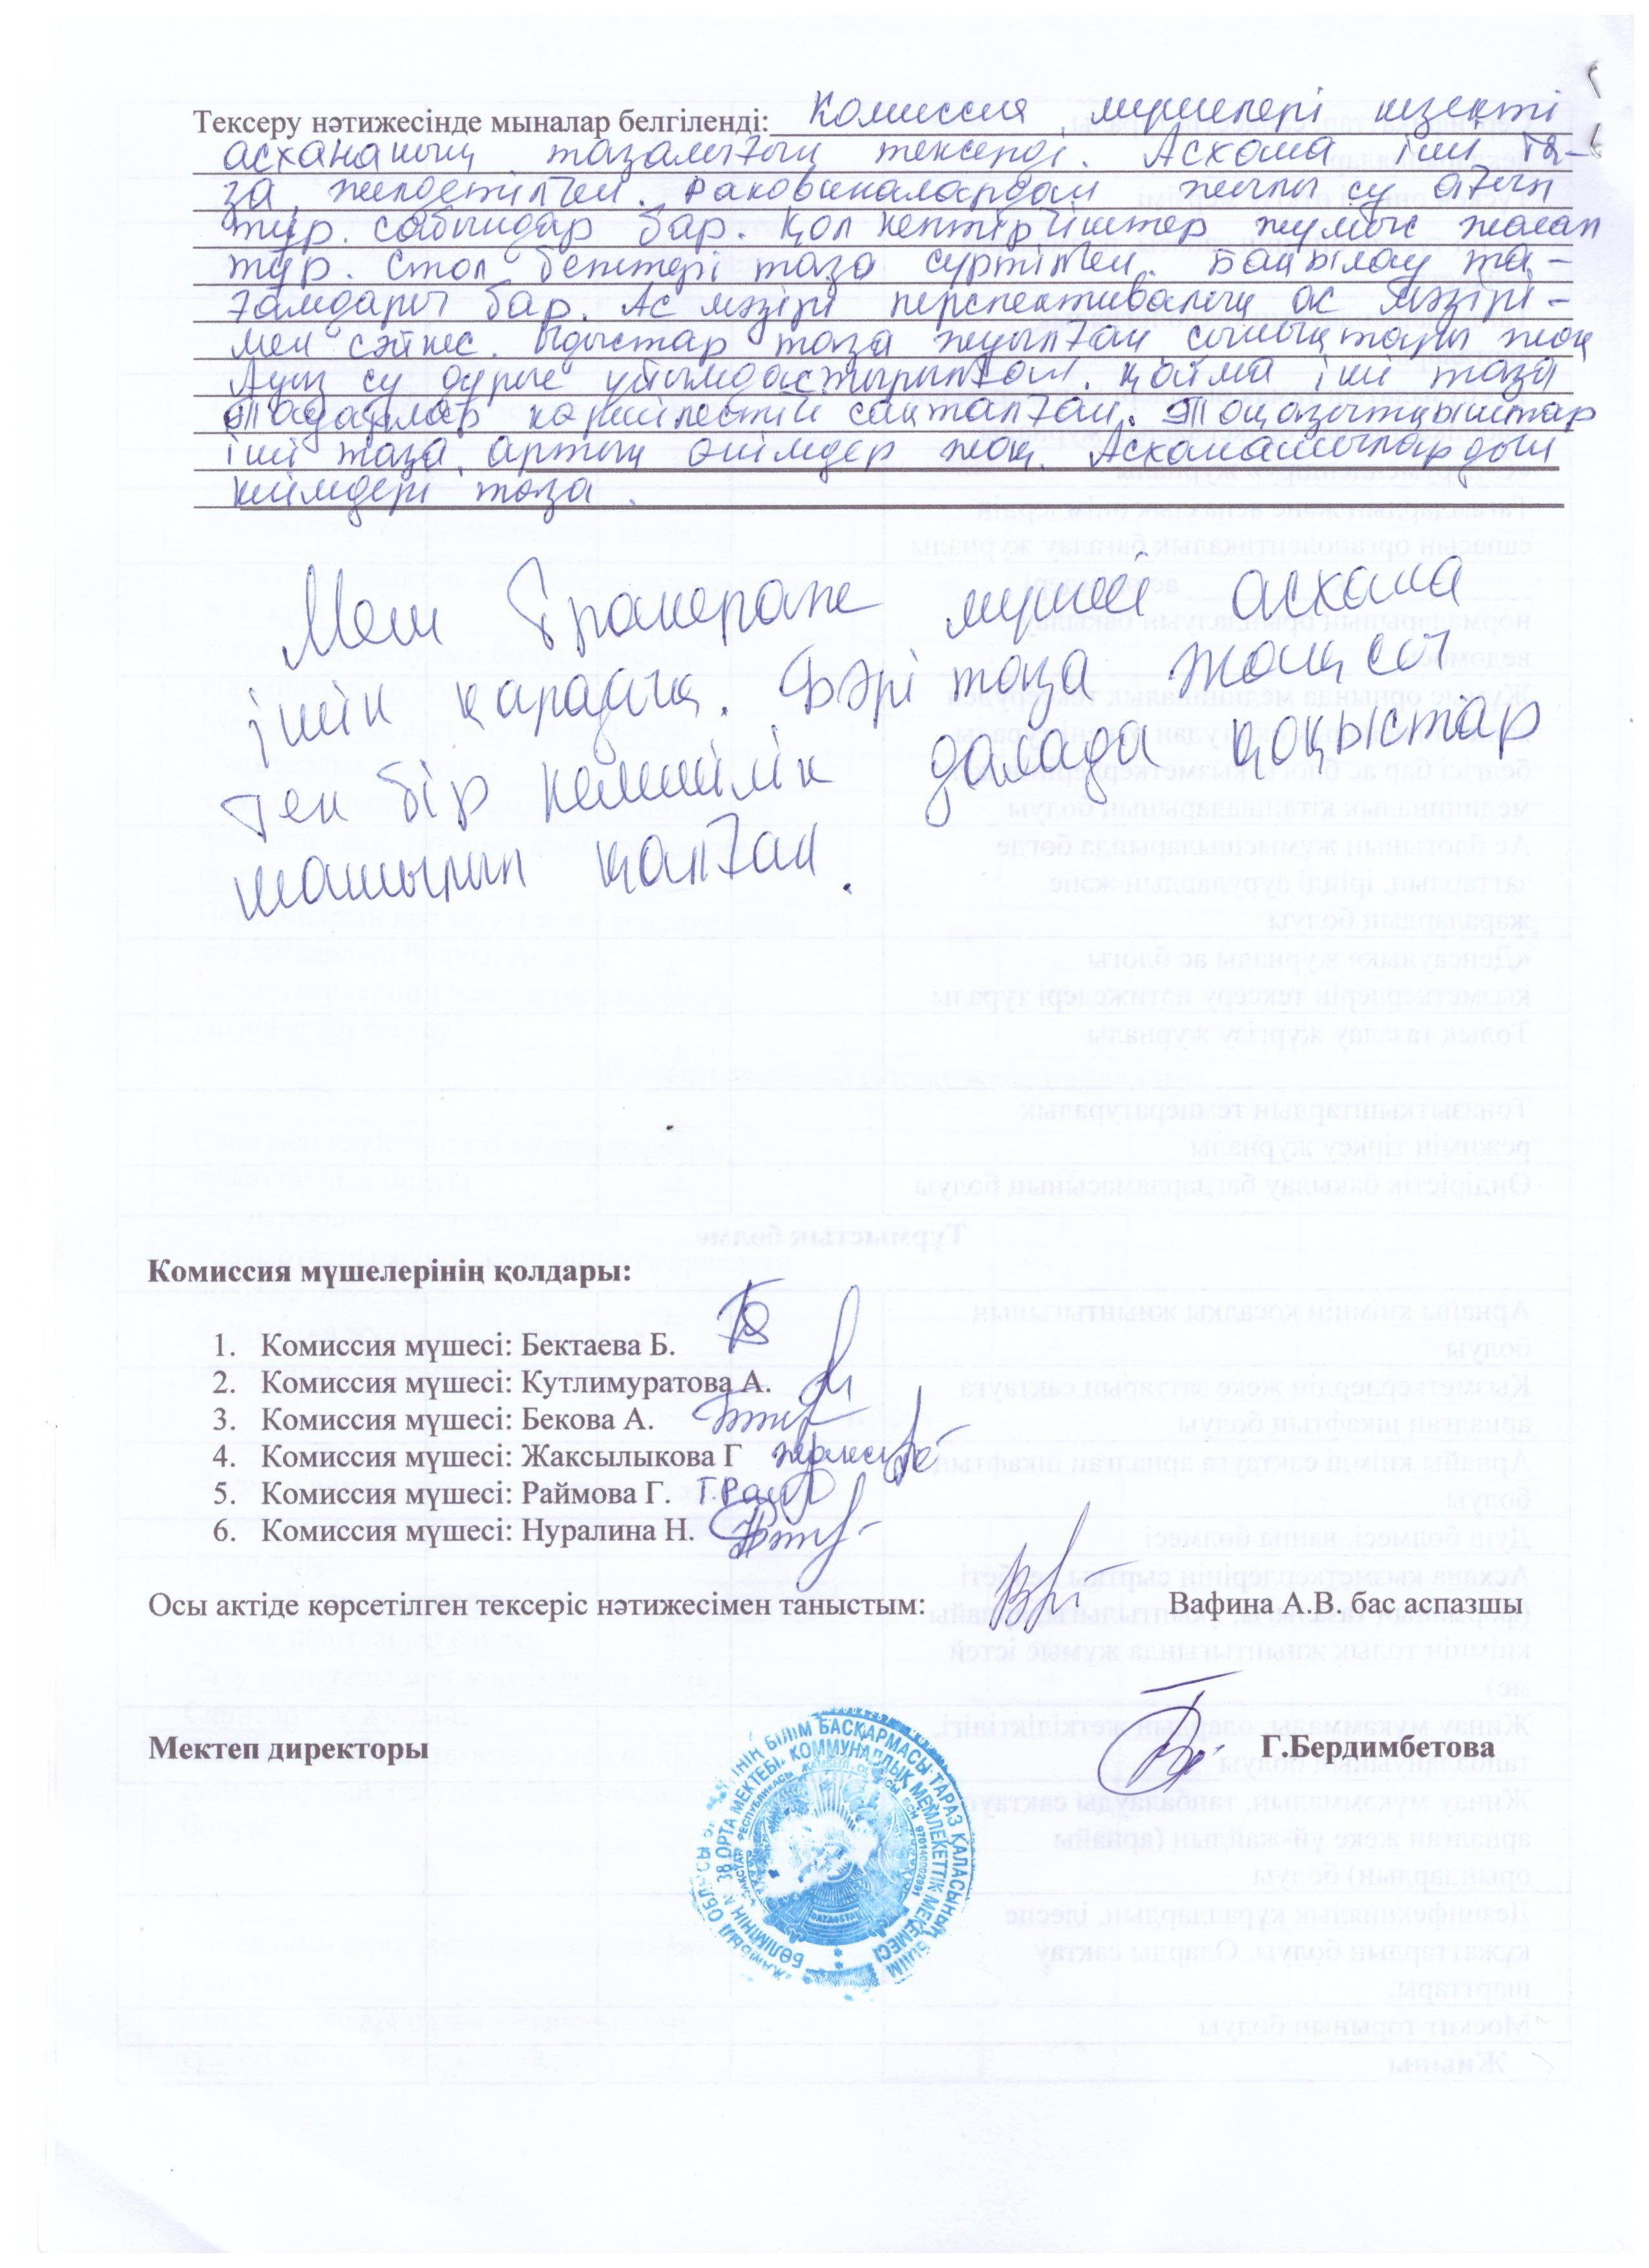 Тексеру нәтижесінде мыналар белгіленді: Комиссия мүшелері кезекті
асхананың тазалығын тексерді. Асхана іші та-
за, желдетілген. Раковиналардан жылы су ағып
тұр. сабындар бар. Қол кептіргіштер жұмыс жасап
тұр. Стол беттері таза сүртілген. Бақылау та-
ғамдары бар. Ас мәзірі перспективалық ас мәзірі-
мен сәйкес. Ыдыстар таза жуылған сынықтары жоқ
Ауыз су дұрыс ұйымдастырылған. қойма іші таза
Тағамдар көршілестігі сақталған. Тоңазытқыштар
іші таза, артық өнімдер жоқ. Асханашылардың
киімдері таза.
Мен бракераж мүшесі асхана
ішін қарадық. Бәрі таза жақсы
тек бір кемшілік далада қоқыстар
шашылып қалған.
Комиссия мүшелерінің қолдары:
1. Комиссия мүшесі: Бектаева Б.
2. Комиссия мүшесі: Кутлимуратова А.
3. Комиссия мүшесі: Бекова А.
4. Комиссия мүшесі: Жаксылыкова Г
5. Комиссия мүшесі: Раймова Г. Г.Раи
6. Комиссия мүшесі: Нуралина Н.
Осы актіде көрсетілген тексеріс нәтижесімен таныстым: Вафина А.В. бас аспазшы
Мектеп директоры Г.Бердимбетова
БІЛІМ БАСҚАРМАСЫ ТАРАЗ ҚАЛАСЫНЫҢ БІЛІМ
БӨЛІМІНІҢ № 38 ОРТА МЕКТЕБІ КОММУНАЛДЫҚ МЕМЛЕКЕТТІК МЕКЕМЕСІ